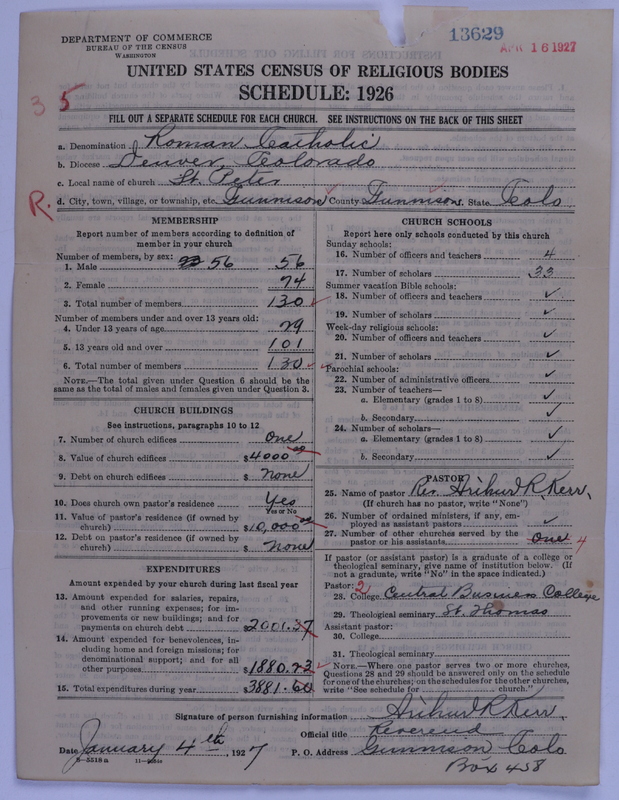 DEPARTMENT OF COMMERCE
BUREAU OF THE CENSUS
WASHINGTON
13629
APR 16 1927
UNITED STATES CENSUS OF RELIGIOUS BODIES
SCHEDULE: 1926
3 5
FILL OUT A SEPARATE SCHEDULE FOR EACH CHURCH. SEE INSTRUCTIONS ON THE BACK OF THIS SHEET
a. Denomination Roman Catholic
b. Diocese Denver, Colorado
c. Local name of church St. Peter
R. d. City, town, village, or township, etc. Gunnison County Gunnison State Colo
MEMBERSHIP
Report number of members according to definition of
member in your church
Number of members, by sex:
1. Male 56 56
2. Female 74
3. Total number of members 130
Number of members under and over 13 years old:
4. Under 13 years of age 29
5. 13 years old and over 101
6. Total number of members 130
NOTE.—The total given under Question 6 should be the
same as the total of males and females given under Question 3.
CHURCH BUILDINGS
See instructions, paragraphs 10 to 12
7. Number of church edifices One
8. Value of church edifices $4000 00
9. Debt on church edifices $ None
10. Does church own pastor's residence Yes
Yes or No
11. Value of pastor's residence (if owned by
church) $10,000 00
12. Debt on pastor's residence (if owned by
church) $ None
EXPENDITURES
Amount expended by your church during last fiscal year
13. Amount expended for salaries, repairs,
and other running expenses; for im-
provements or new buildings; and for
payments on church debt $2001.37
14. Amount expended for benevolences, in-
cluding home and foreign missions; for
denominational support; and for all
other purposes $1880.23
15. Total expenditures during year $3881.60
CHURCH SCHOOLS
Report here only schools conducted by this church
Sunday schools:
16. Number of officers and teachers 4
17. Number of scholars 33
Summer vacation Bible schools:
18. Number of officers and teachers ✓
19. Number of scholars ✓
Week-day religious schools:
20. Number of officers and teachers ✓
21. Number of scholars ✓
Parochial schools:
22. Number of administrative officers ✓
23. Number of teachers—
a. Elementary (grades 1 to 8) ✓
b. Secondary ✓
24. Number of scholars—
a. Elementary (grades 1 to 8) ✓
b. Secondary ✓
PASTOR
25. Name of pastor Rev. Arthur R. Kerr,
(If church has no pastor, write "None")
26. Number of ordained ministers, if any, em-
ployed as assistant pastors ✓
27. Number of other churches served by the
pastor or his assistants One 4
If pastor (or assistant pastor) is a graduate of a college or
theological seminary, give name of institution below. (If
not a graduate, write "No" in the space indicated.)
Pastor: 2
28. College Central Business College
29. Theological seminary St. Thomas
Assistant pastor:
30. College
31. Theological seminary
NOTE.—Where one pastor serves two or more churches,
Questions 28 and 29 should be answered only on the schedule
for one of the churches; on the schedules for the other churches,
write "See schedule for church."
Signature of person furnishing information Arthur R Kerr,
Official title Reverend
Date January 4th, 1927 P. O. Address Gunnison Colo
8—5518a
Box 458